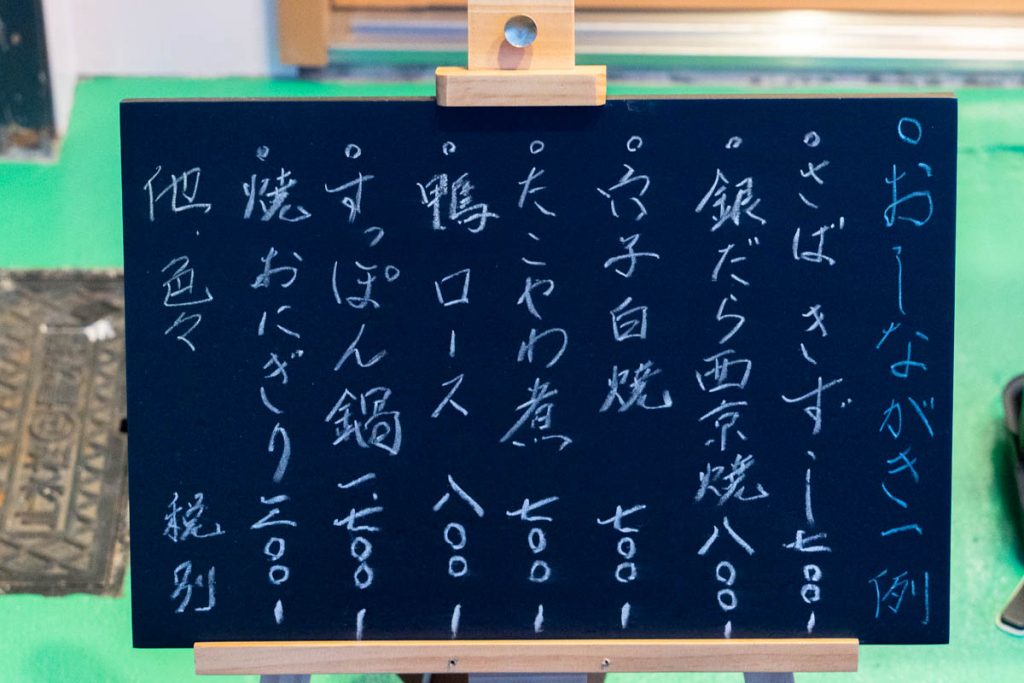 ○おしながき一例
○さばきずし七〇〇-
○銀だら西京焼八〇〇-
○穴子白焼 七〇〇-
○たこやわ煮 七〇〇-
○鴨ロース 八〇〇-
○すっぽん鍋一、七〇〇-
○焼おにぎり三〇〇-
他、色々 税別